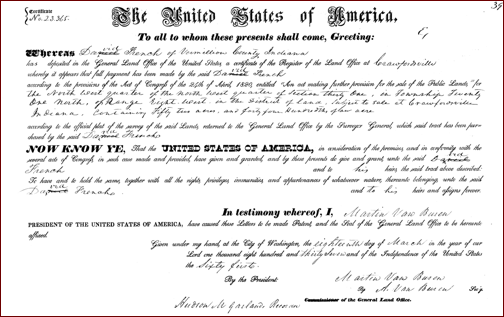 Certificate
No. 23365.
The United States of America,
39
To all to whom these presents shall come, Greeting:
Whereas David French of Vermillion County Indiana
has deposited in the General Land Office of the United States, a certificate of the Register of the Land Office at Crawfordsville
whereby it appears that full payment has been made by the said David French
according to the provisions of the Act of Congress of the 24th of April, 1820, entitled "An act making further provision for the sale of the Public Lands," for
the North West quarter of the North West quarter of Section thirty one, in Township Twenty
One North, of Range Eight West in the District of Lands Subject to sale at Crawfordsville
Indiana, containing fifty two acres, and forty four hundredths of an acre
according to the official plat of the survey of the said Lands, returned to the General Land Office by the Surveyor General, which said tract has been purchased by the said David French,
NOW KNOW YE, That the UNITED STATES OF AMERICA, in consideration of the premises, and in conformity with the
several acts of Congress, in such case made and provided, have given and granted, and by these presents do give and grant, unto the said David
French and to his heirs, the said tract above described:
To have and to hold the same, together with all the rights, privileges, immunities, and appurtenances of whatsoever nature, thereunto belonging, unto the said
David French and to his heirs and assigns forever.
In testimony whereof, I, Martin Van Buren
PRESIDENT OF THE UNITED STATES OF AMERICA, have caused these Letters to be made Patent, and the Seal of the General Land Office to be hereunto
affixed.
Given under my hand, at the City of Washington, the eighteenth day of March in the year of our
Lord one thousand eight hundred and thirty seven and of the Independence of the United States
the Sixty first.
By the President: Martin Van Buren
By A. Van Buren Sec'y
Hudson M Garland Recorder of the General Land Office.